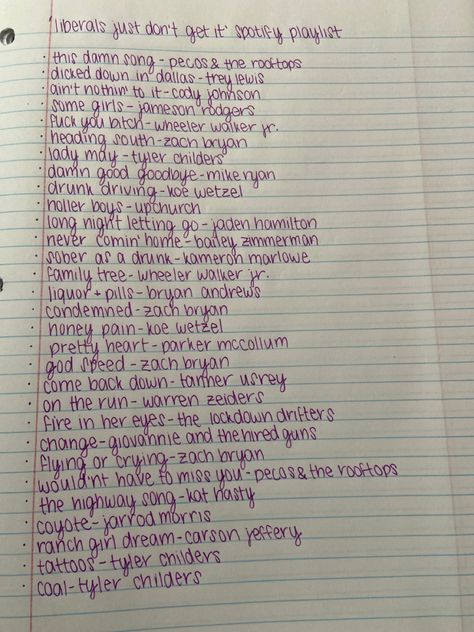 'liberals just don't get it' spotify playlist
· this damn song - pecos & the rooftops
· dicked down in dallas - trey lewis
· ain't nothin' to it - cody johnson
· some girls - jameson rodgers
· fuck you bitch - wheeler walker jr.
· heading south - zach bryan
· lady may - tyler childers
· damn good goodbye - mike ryan
· drunk driving - koe wetzel
· holler boys - upchurch
· long night letting go - jaden hamilton
· never comin' home - bailey zimmerman
· sober as a drunk - kameron marlowe
· family tree - wheeler walker jr.
· liquor + pills - bryan andrews
· condemned - zach bryan
· honey pain - koe wetzel
· pretty heart - parker mccollum
· god speed - zach bryan
· come back down - tanner usrey
· on the run - warren zeiders
· fire in her eyes - the lockdown drifters
· change - giovannie and the hired guns
· flying or crying - zach bryan
· would'nt have to miss you - pecos & the rooftops
· the highway song - kat hasty
· coyote - jarrod morris
· ranch girl dream - carson jeffery
· tattoos - tyler childers
· coal - tyler childers